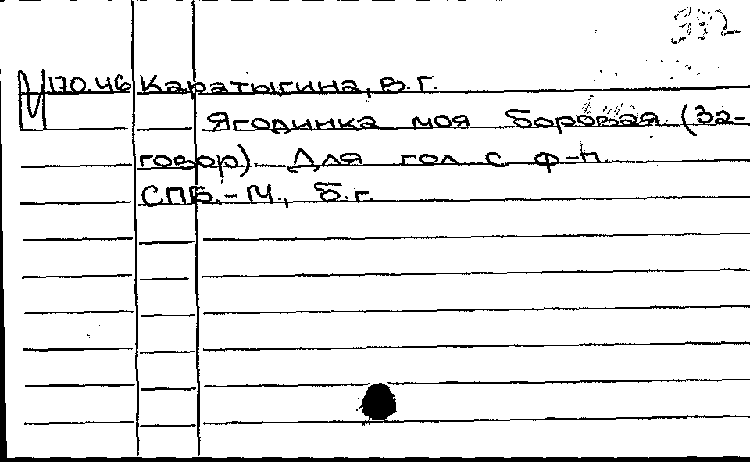 332
М 170.46 Каратыгина, В.Г.
Ягодинка моя боровая. (За-
говор). Для гол с ф-п.
СПБ.-М., б.г.